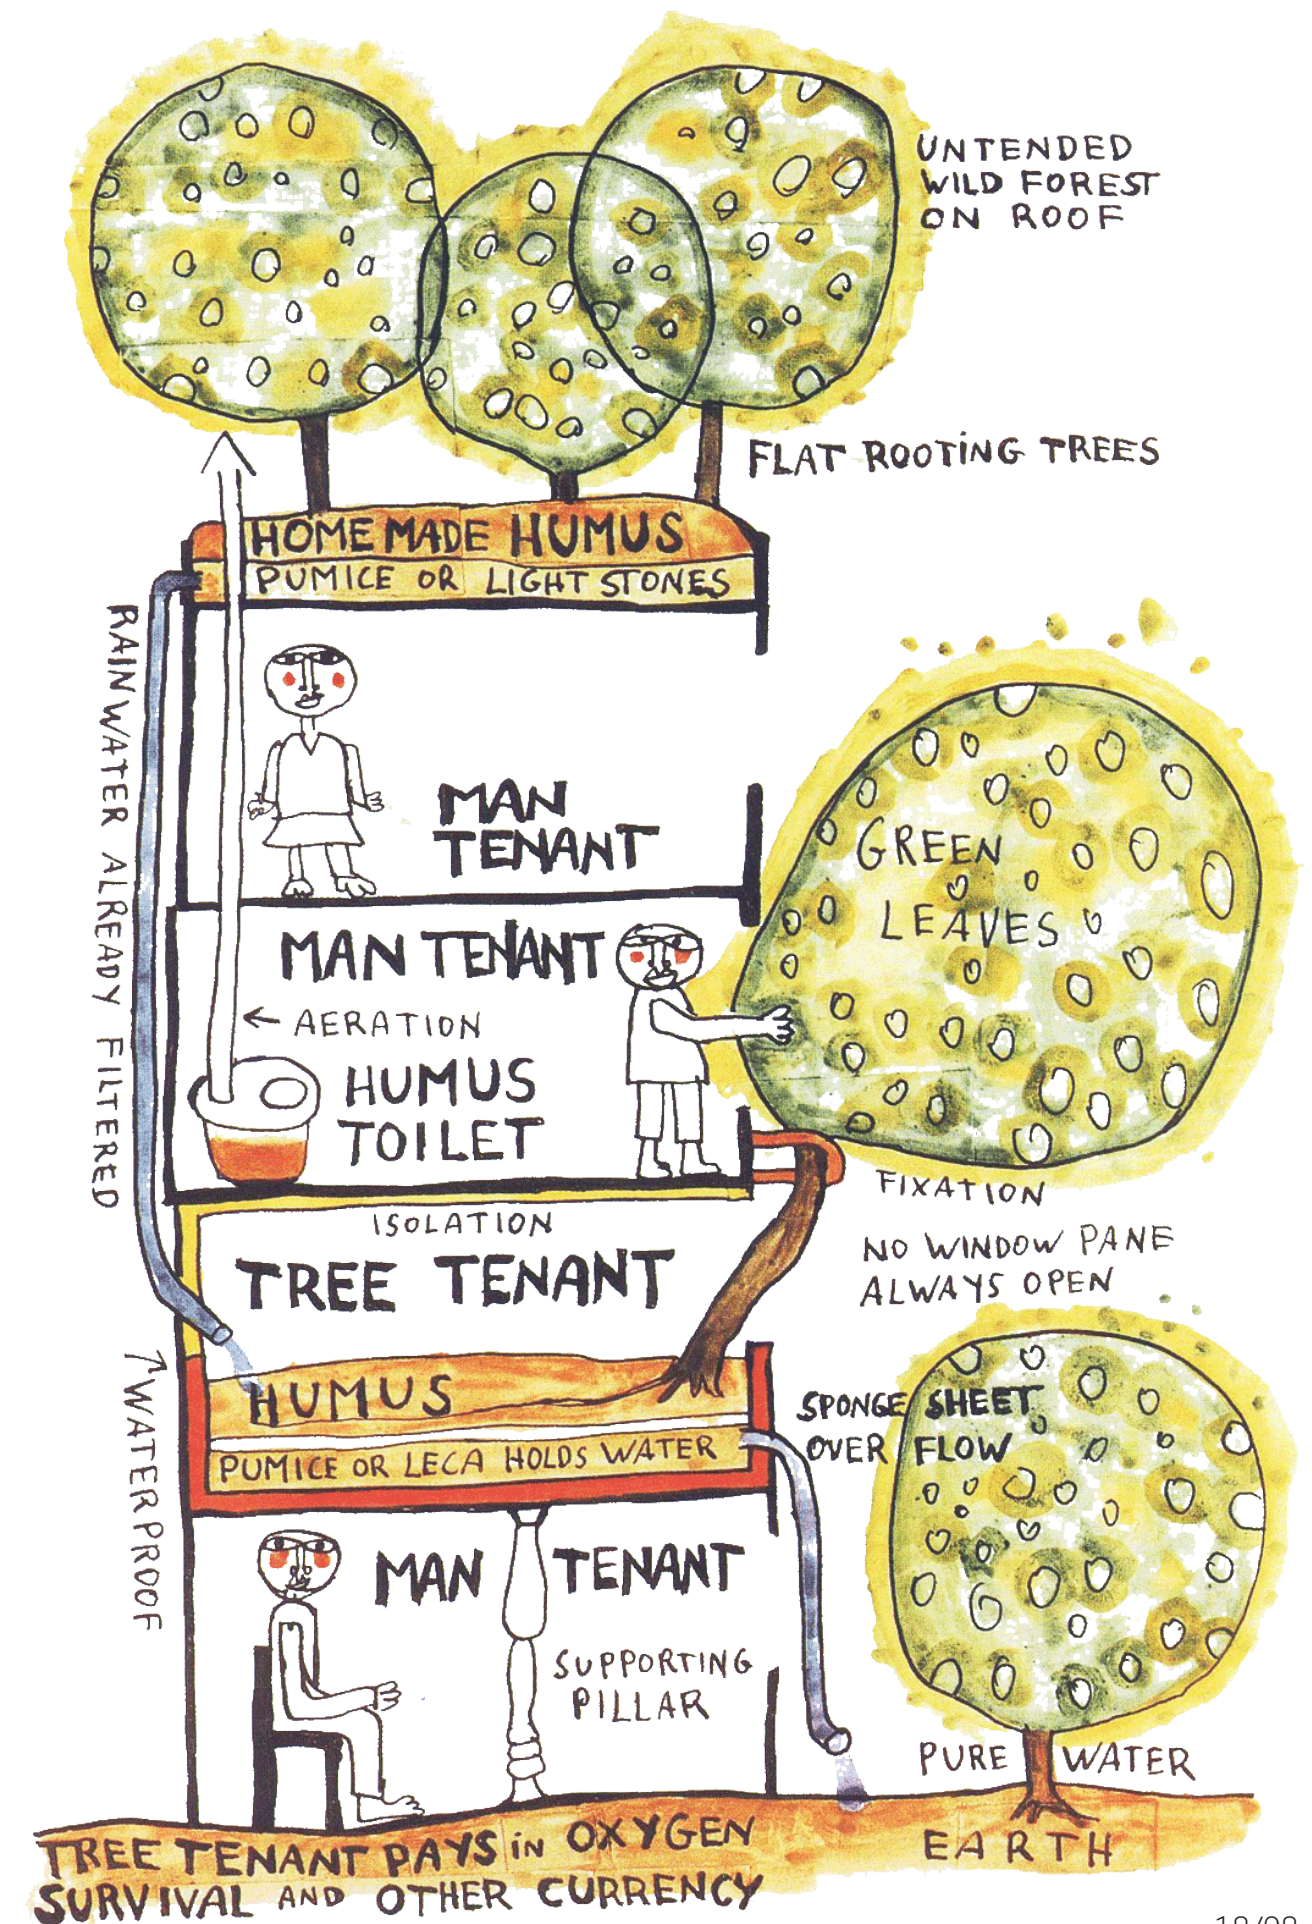 UNTENDED
WILD FOREST
ON ROOF
FLAT ROOTING TREES
HOME MADE HUMUS
PUMICE OR LIGHT STONES
RAINWATER ALREADY FILTERED
MAN
TENANT
GREEN
LEAVES
MAN TENANT
← AERATION
HUMUS
TOILET
FIXATION
ISOLATION
TREE TENANT
NO WINDOW PANE
ALWAYS OPEN
WATERPROOF
HUMUS
PUMICE OR LECA HOLDS WATER
SPONGE SHEET
OVER FLOW
MAN TENANT
SUPPORTING
PILLAR
PURE WATER
EARTH
TREE TENANT PAYS in OXYGEN
SURVIVAL AND OTHER CURRENCY